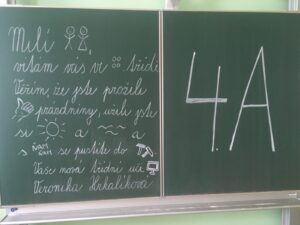 Milí
vítám vás ve třídě
Věřím, že jste prožili
prázdniny, užili jste
si a a
se pustíte do
Vaše nová třídní uči
Veronika
4.A